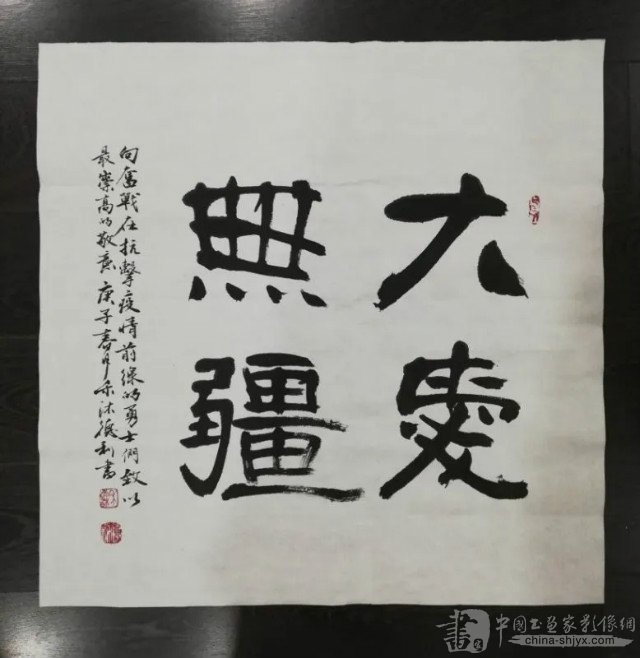 大愛
無疆
向奮戰在抗擊疫情前線的勇士們致以
最崇高的敬意 庚子春月 書
中国书画家影像網
china-shjyx.com